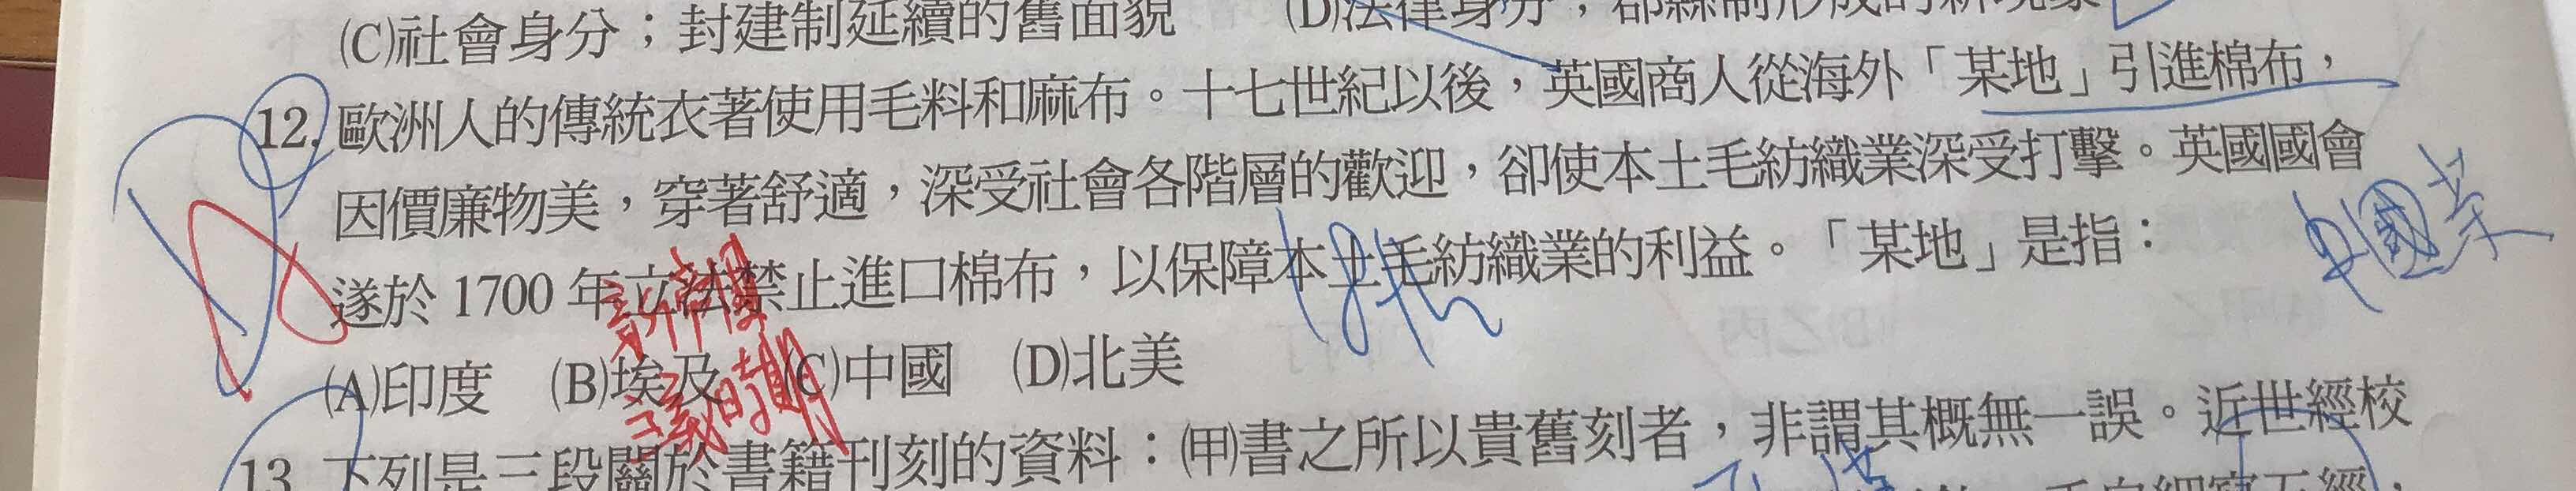 (C)社會身分；封建制延續的舊面貌　(D)法律身分，
12. 歐洲人的傳統衣著使用毛料和麻布。十七世紀以後，英國商人從海外「某地」引進棉布，
因價廉物美，穿著舒適，深受社會各階層的歡迎，卻使本土毛紡織業深受打擊。英國國會
遂於 1700 年立法禁止進口棉布，以保障本土毛紡織業的利益。「某地」是指：
(A)印度　(B)埃及　(C)中國　(D)北美
13. 下列是三段關於書籍刊刻的資料：(甲)書之所以貴舊刻者，非謂其概無一誤。近世經校